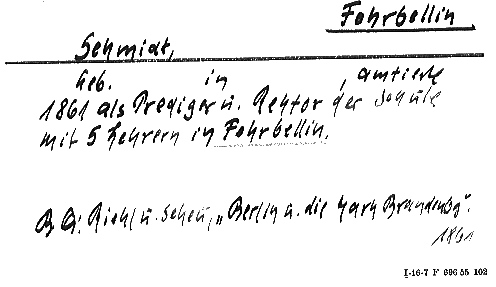 Fehrbellin
Schmidt,
Geb. in , amtierte
1861 als Prediger u. Rektor der Schule
mit 5 Lehrern in Fehrbellin.
B Q: Riehl u. Scheu, „Berlin u. die Mark Brandenbg".
1861
I-16-7 F 696 55 102